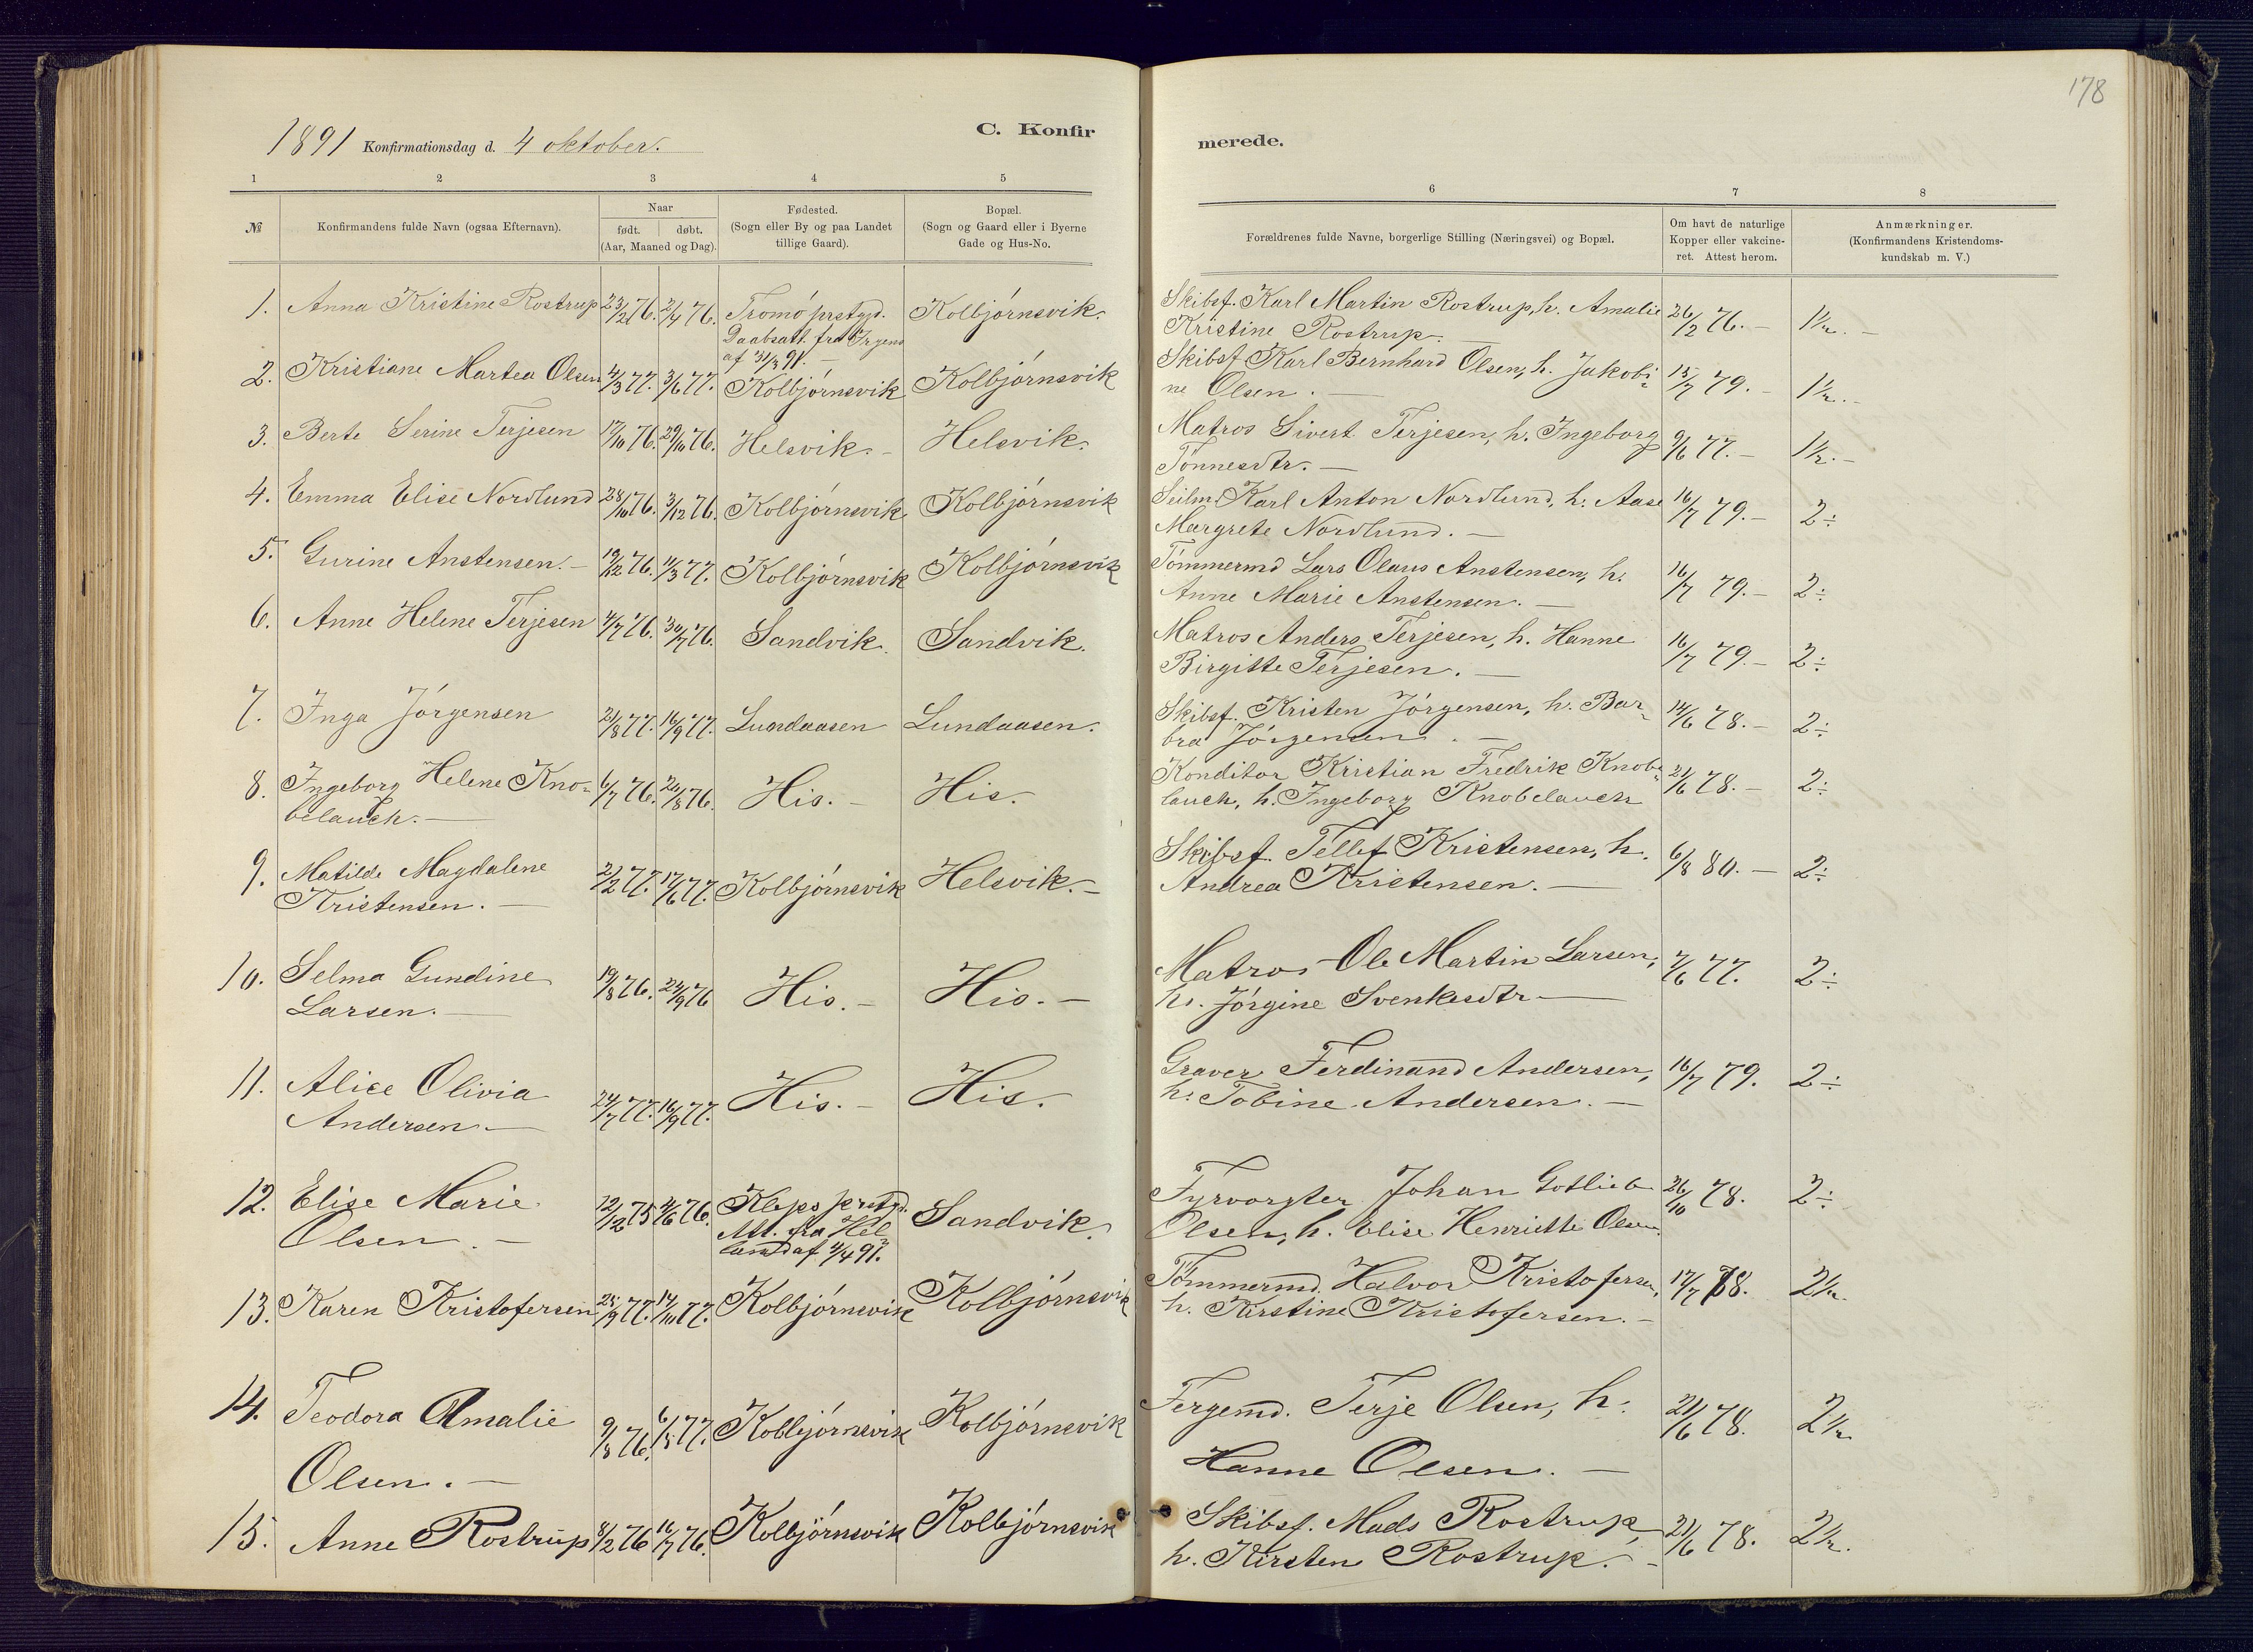 178
1891 Konfirmationsdag d. 4 oktober.
C. Konfirmerede.
1 2 3 4 5 6 7 8
№
Konfirmandens fulde Navn (ogsaa Efternavn).
Naar
født. døbt.
(Aar, Maaned og Dag).
Fødested.
(Sogn eller By og paa Landet
tillige Gaard).
Bopæl.
(Sogn og Gaard eller i Byerne
Gade og Hus-No.
Forældrenes fulde Navne, borgerlige Stilling (Næringsvei) og Bopæl.
Om havt de naturlige
Kopper eller vakcine-
ret. Attest herom.
Anmærkninger.
(Konfirmandens Kristendoms-
kundskab m. V.)
1. Anna Kristine Rostrup 23/2 76. 2/4 76. Tromö prstgjd. Kolbjörnsvik. Skibsf. Karl Martin Rostrup, h. Amalie 26/2 76.- 1½.-
Daabsatt. fra
af 31/3 91.- Kristine Rostrup.
2. Kristiane Martea Olsen 4/3 77. 3/6 77. Kolbjörnsvik Kolbjörnsvik Skibsf Karl Bernhard Olsen, h. Jakobi- 15/7 79.- 1½.-
ne Olsen.-
3. Berte Serine Terjesen 17/10 76. 29/10 76. Helsvik.- Helsvik. Matros Sivert Terjesen, h. Ingeborg 9/6 77.- 1½.-
Tönnesdtr.-
4. Emma Elise Nordlund 28/10 76. 3/12 76. Kolbjörnsvik Kolbjörnsvik Seilmd Karl Anton Nordlund, h. Aase 16/7 79.- 2÷
Margrete Nordlund.-
5. Gurine Anstensen.- 19/12 76. 11/3 77. Kolbjörnsvik Kolbjörnsvik Tömmermd Lars Olaus Anstensen, h. 16/7 79.- 2÷
Anne Marie Anstensen.-
6. Anne Helene Terjesen 4/7 76. 30/7 76. Sandvik. Sandvik. Matros Anders Terjesen, h. Hanne 16/7 79.- 2÷
Birgitte Terjesen.-
7. Inga Jörgensen 21/8 77. 16/9 77. Lundaasen Lundaasen. Skibsf. Kristen Jörgensen, h. Bar- 14/6 78.- 2÷
bra Jörgensen.-
8. Ingeborg Helene Kno- 6/7 76. 20/8 76. His.- His. Konditor Kristian Fredrik Knobe- 21/6 78.- 2÷
belauch.- lauch, h. Ingeborg Knobelauch
9. Matilde Magdalene 2/2 77. 17/6 77. Kolbjörnsvik Helsvik.- Skibsf. Tellef Kristensen, h. 6/8 80.- 2÷
Kristensen.- Andrea Kristensen.-
10. Selma Gundine 19/8 76. 24/9 76 His.- His.- Matros Ole Martin Larsen, 7/6 77. 2÷
Larsen.- h. Jörgine Svenkesdtr-
11. Alice Olivia 24/7 77. 16/9 77. His.- His. Graver Ferdinand Andersen, 16/7 79. 2÷
Andersen- h. Tobine Andersen.-
12. Elise Marie 12/12 75 4/6 76. Kleps prstgj. Sandvik. Fyrvorgter Johan Gotlieb 26/10 78. 2÷
Olsen.- Att. fra Hel-
land af 4/4 91. Olsen, h. Elise Henriette Olsen.
13. Karen Kristofersen 25/9 77. 14/10 77. Kolbjörnsvik Kolbjörnsvik Tömmermd. Halvor Kristofersen, 17/7 78. 2½.
h. Kirstine Kristofersen.-
14. Teodora Amalie 9/8 76. 6/5 77. Kolbjörnsvik Kolbjörnsvik Fergemd. Terje Olsen, h. 21/6 78. 2½
Olsen.- Hanne Olsen.-
15. Anne Rostrup 8/2 76 16/7 76. Kolbjörnsvik Kolbjörnsvik Skibsf. Mads Rostrup, 21/6 78. 2½.
h. Kirsten Rostrup.-